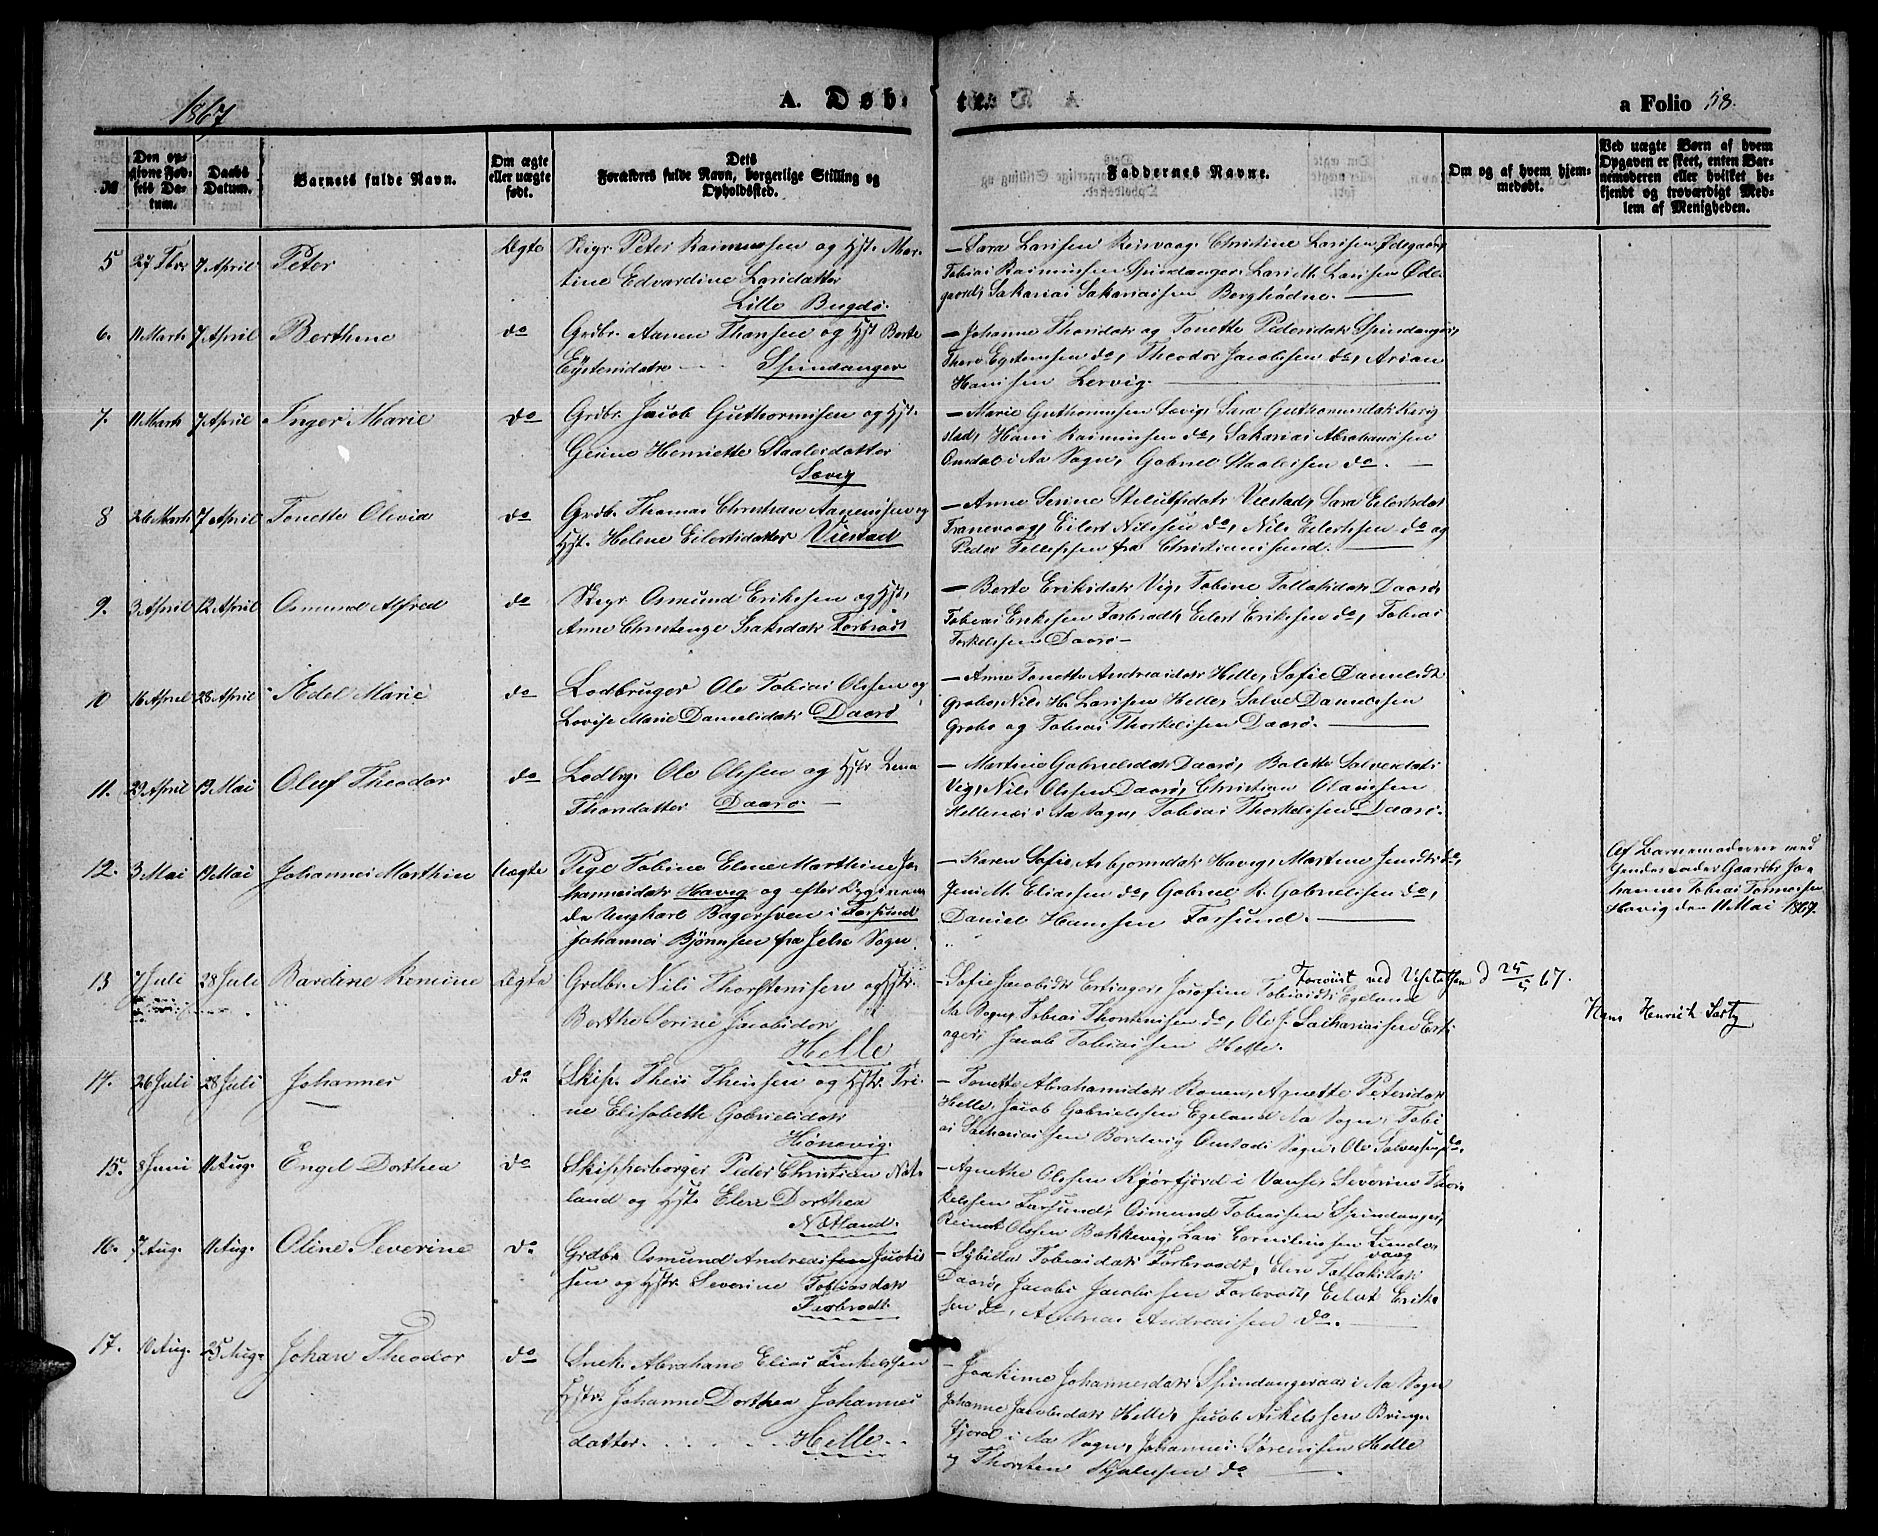 1867
A. Døb-
te.
a Folio 58.
№
Den op-
givne Fød-
sels Da-
tum.
Daabs
Datum.
Barnets fulde Navn.
Om ægte
eller uægte
født.
Dets
Forældres fulde Navn, borgerlige Stilling og
Opholdssted.
Faddernes Navne.
Om og af hvem hjem-
medøbt.
Ved uægte Børn af hvem
Opgaven er skeet, enten Bar-
nemoderen eller hvilket be-
kjendt og troværdigt Med-
lem af Menigheden.
5 27 Fbr 7 April Peter Ægte
Peter Rasmussen og Hst. Mar-
tine Edvardine Larsdatter
Lille Bugdø.
— Sara Larssen Christine Larssen Ødegaard,
Tobias Rasmussen Spindanger, Lars M. Larssen Øde-
gaard, Sakarias Sakariassen Berghødne.
6. 11 Marts 7 April Berthine do
Grdbr. Aanen Thorssen og Hst Berte
Eystensdatr Spindanger
— Johanne Thorsdatr og Tonette Pedersdatr Spindanger,
Thore Eystensen do, Theodor Jacobssen do, Arian
Hanssen Lervig.
7. 11 Marts 7 April Inger Marie do
Grdbr. Jacob Guthormssen og Hst.
Gesine Henriette Staalesdatter
Sævig
— Marie Guthormssen Sævig, Sara Guthormsdatr
stad, Hans Rasmussen do, Sakarias Abrahamssen
Omdal i Aa Sogn, Gabriel Staalessen do.
8 26 Marts 7 April Tonette Olivia do
Grdb. Thomas Christian Aanenssen og
Hst. Helene Eilertsdatter Vierstad
— Anne Serine Vierstad, Sara Eilertsdat
Tranevaag, Eilert Nilssen do, Nils Eilertssen do og
Peder Tellefssen fra Christiansund.
9. 3 April 12 April Osmund Alfred do
Osmund Erikssen og Hst.
Anne Christenze Isaksdatr Forbrødt
— Berte Eriksdatr Vig, Tobine Tollaksdatr Daarø,
Tobias Erikssen Forbrodt, Eilert Erikssen do, Tobias
Torkelssen Daarø —
10 16 April 28 April Adel Marie do
Lodbruger Ole Tobias Olssen og
Lovise Marie Danielsdatr Daarø
— Anne Tonette Andreasdatr Helle, Sofie Danielsdt
Grobo, Nils H. Larssen Helle, Salve Danielssen
Grobo og Tobias Thorkelssen Daarø.
11. 29 April 13 Mai Oluf Theodor do
Lodbg. Ole Olssen og Hstr Lena
Thorsdatter Daarø
— Martine Gabrielsdatr Daarø, Bolette Salvesdatr
Vig, Nils Olssen Daarø, Christian Olaussen
Hellenæs i Aa Sogn, Tobias Thorkelssen Daarø.
12. 3 Mai 13 Mai Johannes Marthin Uægte
Pige Tobine Elene Marthine Jo-
hannesdatr Havig og efter Opgivende
Ungkarl Bagersven i Farsund
Johannes Bjørnsen fra Jelse Sogn
— Karen Sofie Asbjørnsdatr Havig, Martine do,
Jens M. Eliassen do, Gabriel K. Gabrielssen do,
Daniel Hanssen Farsund.
Af Barnemoderen med
Gaardb. Jo-
hannes Tobias Tønnessen
Havig den 11 Mai 1867.
13 7 Juli 28 Juli Bardine Romine Ægte
Grdbr. Nils Thorstenssen og Hstr.
Berthe Serine Jacobsdatr
Helle
— Sofie Jacobsdt Eitinger, Josefine Tobiasdt Egeland
Aa Sogn, Tobias Thorstenssen do, Ole J. Sachariassen
Jacob Tobiassen Helle.
Foreviist ved Visitatsen d 25/5 67.
14. 26 Juli 28 Juli Johannes do
Skip. Theis Theissen og Hstr. Tri-
ne Elisabeth Gabrielsdatr
Hønevig.
— Tonette Abrahamsdatr Ronen, Agnette Petersdatr
Helle, Jacob Gabrielssen Egeland Aa Sogn, Tobi-
as Sachariassen Bordvig Omlands Sogn, Ole Salvesen do.
15. 8 Juni 11 Aug. Engel Dorthea do
Skipperborger Peder Christian Nøt-
land og Hst. Elen Dorthea
Nøtland.
— Agnethe Olssen Kjørfjord i Vanse, Severine Thor-
kelssen Farsund, Osmund Tobiassen Spindanger,
Reinert Olssen Bækkevig, Lars Corneliussen Lunde-
vaag
16. 7 Aug. 11 Aug. Oline Severine do
Grdbr. Osmund Andreassen Jacobs-
sen og Hstr. Severine Tobiasdatr
Forbrodt.
— Sybilla Tobiasdatr Forbrodt, Elen Tollaksdatr
Daarø, Jacob Jacobssen Forbrodt, Eilert Erik-
sen do, Andreas Andreassen do.
17. 10 Aug. 25 Aug. Johan Theodor do
Snek. Abraham Elias Torkelssen
Hstr. Johanne Dorthea Johannes-
datter. Helle
— Joakime Johannesdatr Spindangeraas i Aa Sogn
Johanne Jacobsdatr Helle, Jacob Askelssen Bringe-
fjord i Aa Sogn, Johannes Sørenssen Helle
og Thorsten do